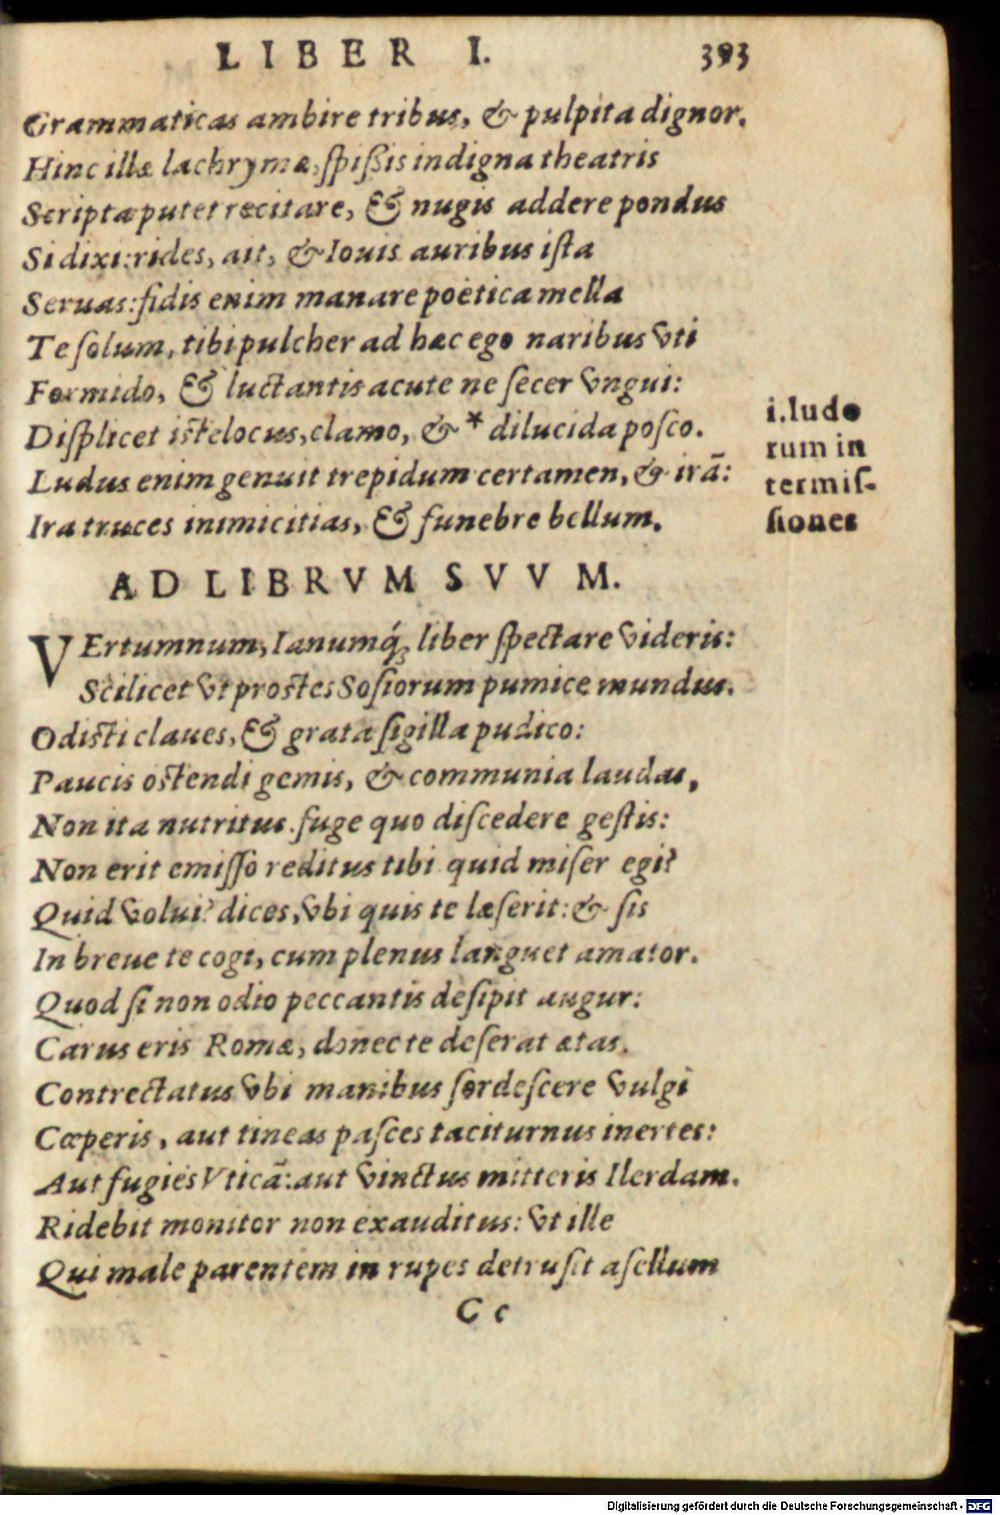 LIBER I. 393
Grammaticas ambire tribus, & pulpita dignor.
Hinc illæ lachrymæ, ſpiſsis indigna theatris
Scripta putet recitare, & nugis addere pondus
Si dixi: rides, ait, & Iouis auribus iſta
Seruas: fidis enim manare poëtica mella
Te ſolum, tibi pulcher ad hæc ego naribus vti
Formido, & luctantis acute ne ſecer vngui:
Diſplicet iſte locus, clamo, & * dilucida poſco.
Ludus enim genuit trepidum certamen, & irā:
Ira truces inimicitias, & funebre bellum.
i.ludo
rum in
termiſ-
ſiones
AD LIBRVM SVVM.
VErtumnum, Ianumq́; liber ſpectare videris:
Scilicet vt proſtes Soſiorum pumice mundus.
Odiſti claues, & grata ſigilla pudico:
Paucis oſtendi gemis, & communia laudas,
Non ita nutritus. fuge quo diſcedere geſtis:
Non erit emiſſo reditus tibi quid miſer egi?
Quid volui? dices, vbi quis te læſerit: & ſis
In breue te cogi, cum plenus languet amator.
Quod ſi non odio peccantis deſipit augur:
Carus eris Romæ, donec te deſerat ætas.
Contrectatus vbi manibus ſordeſcere vulgi
Cœperis, aut tineas paſces taciturnus inertes:
Aut fugies Vticā: aut vinctus mitteris Ilerdam.
Ridebit monitor non exauditus: vt ille
Qui male parentem in rupes detruſit aſellum
C c
Digitalisierung gefördert durch die Deutsche Forschungsgemeinschaft - DFG